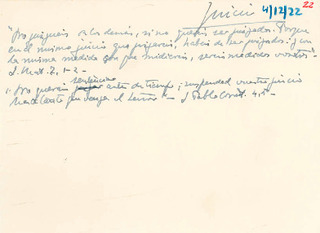 Juicio 4/12/22 22
"No juzgueis a los demás, si no quereis ser juzgados. Porque
en el mismo juicio que juzgareis, habeis de ser juzgados: y con
la misma medida con que midiereis, sereis medidos vosotros"
S. Mat. 7, 1-2 -
sentenciar
"No querais juzgar antes de tiempo; suspended vuestro juicio
hasta tanto que venga el Señor" - S. Pablo 4, 5 -